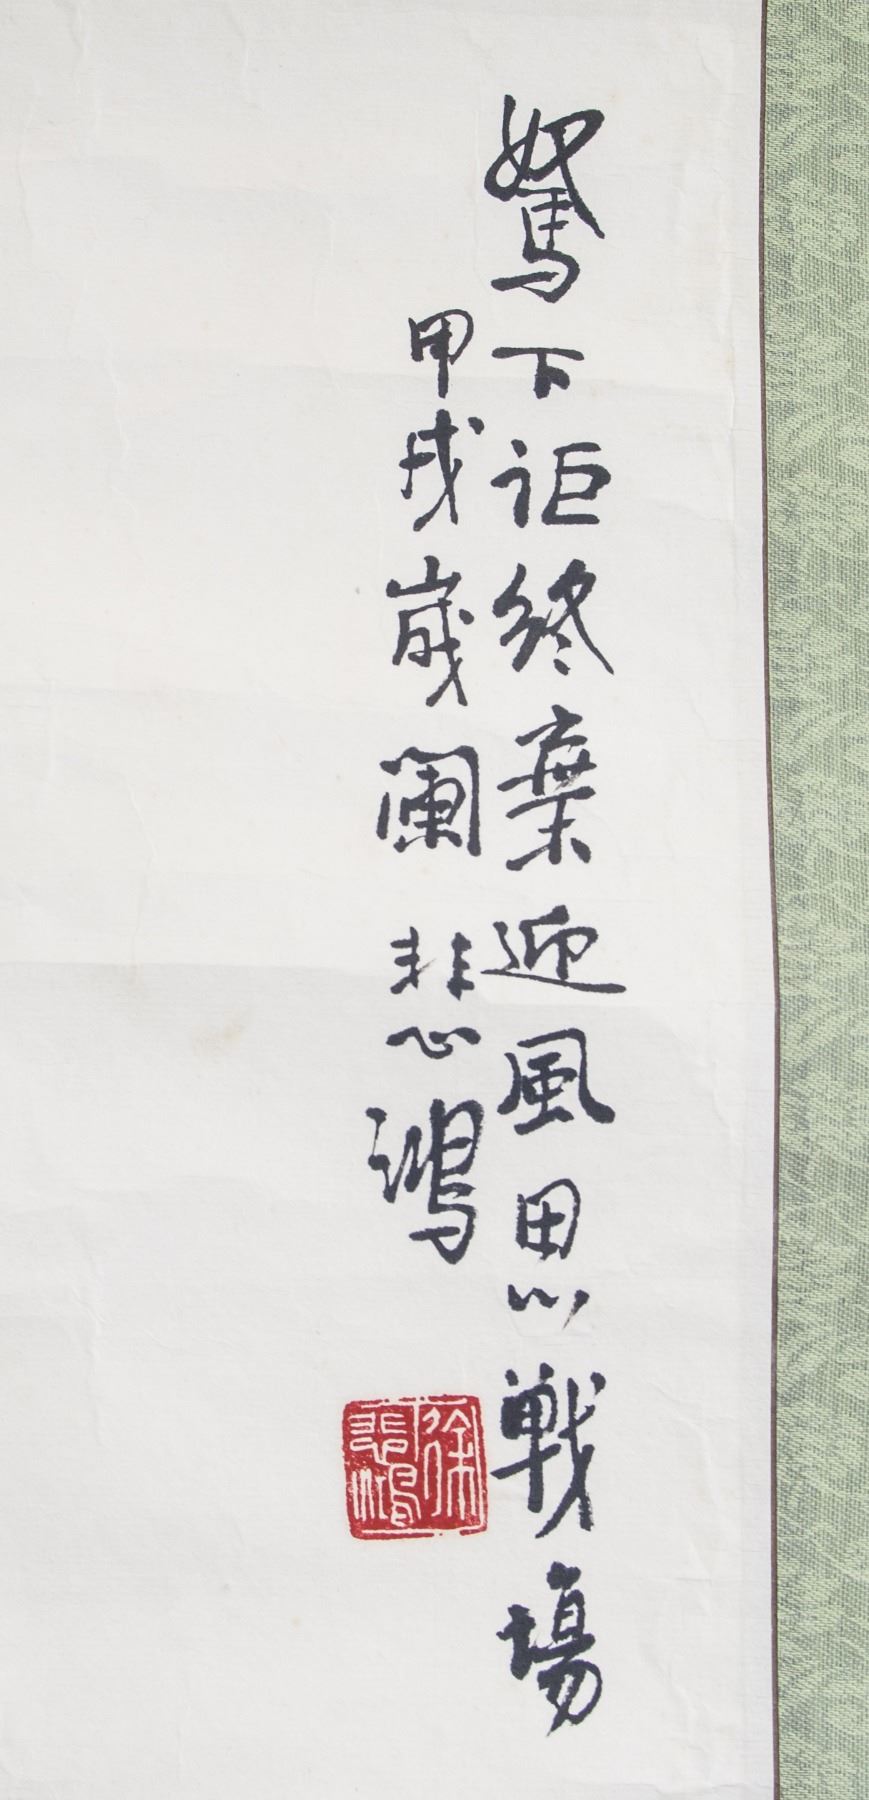 駑下詎終棄迎風思戰場
甲戌歲闌 悲鴻
徐悲鴻